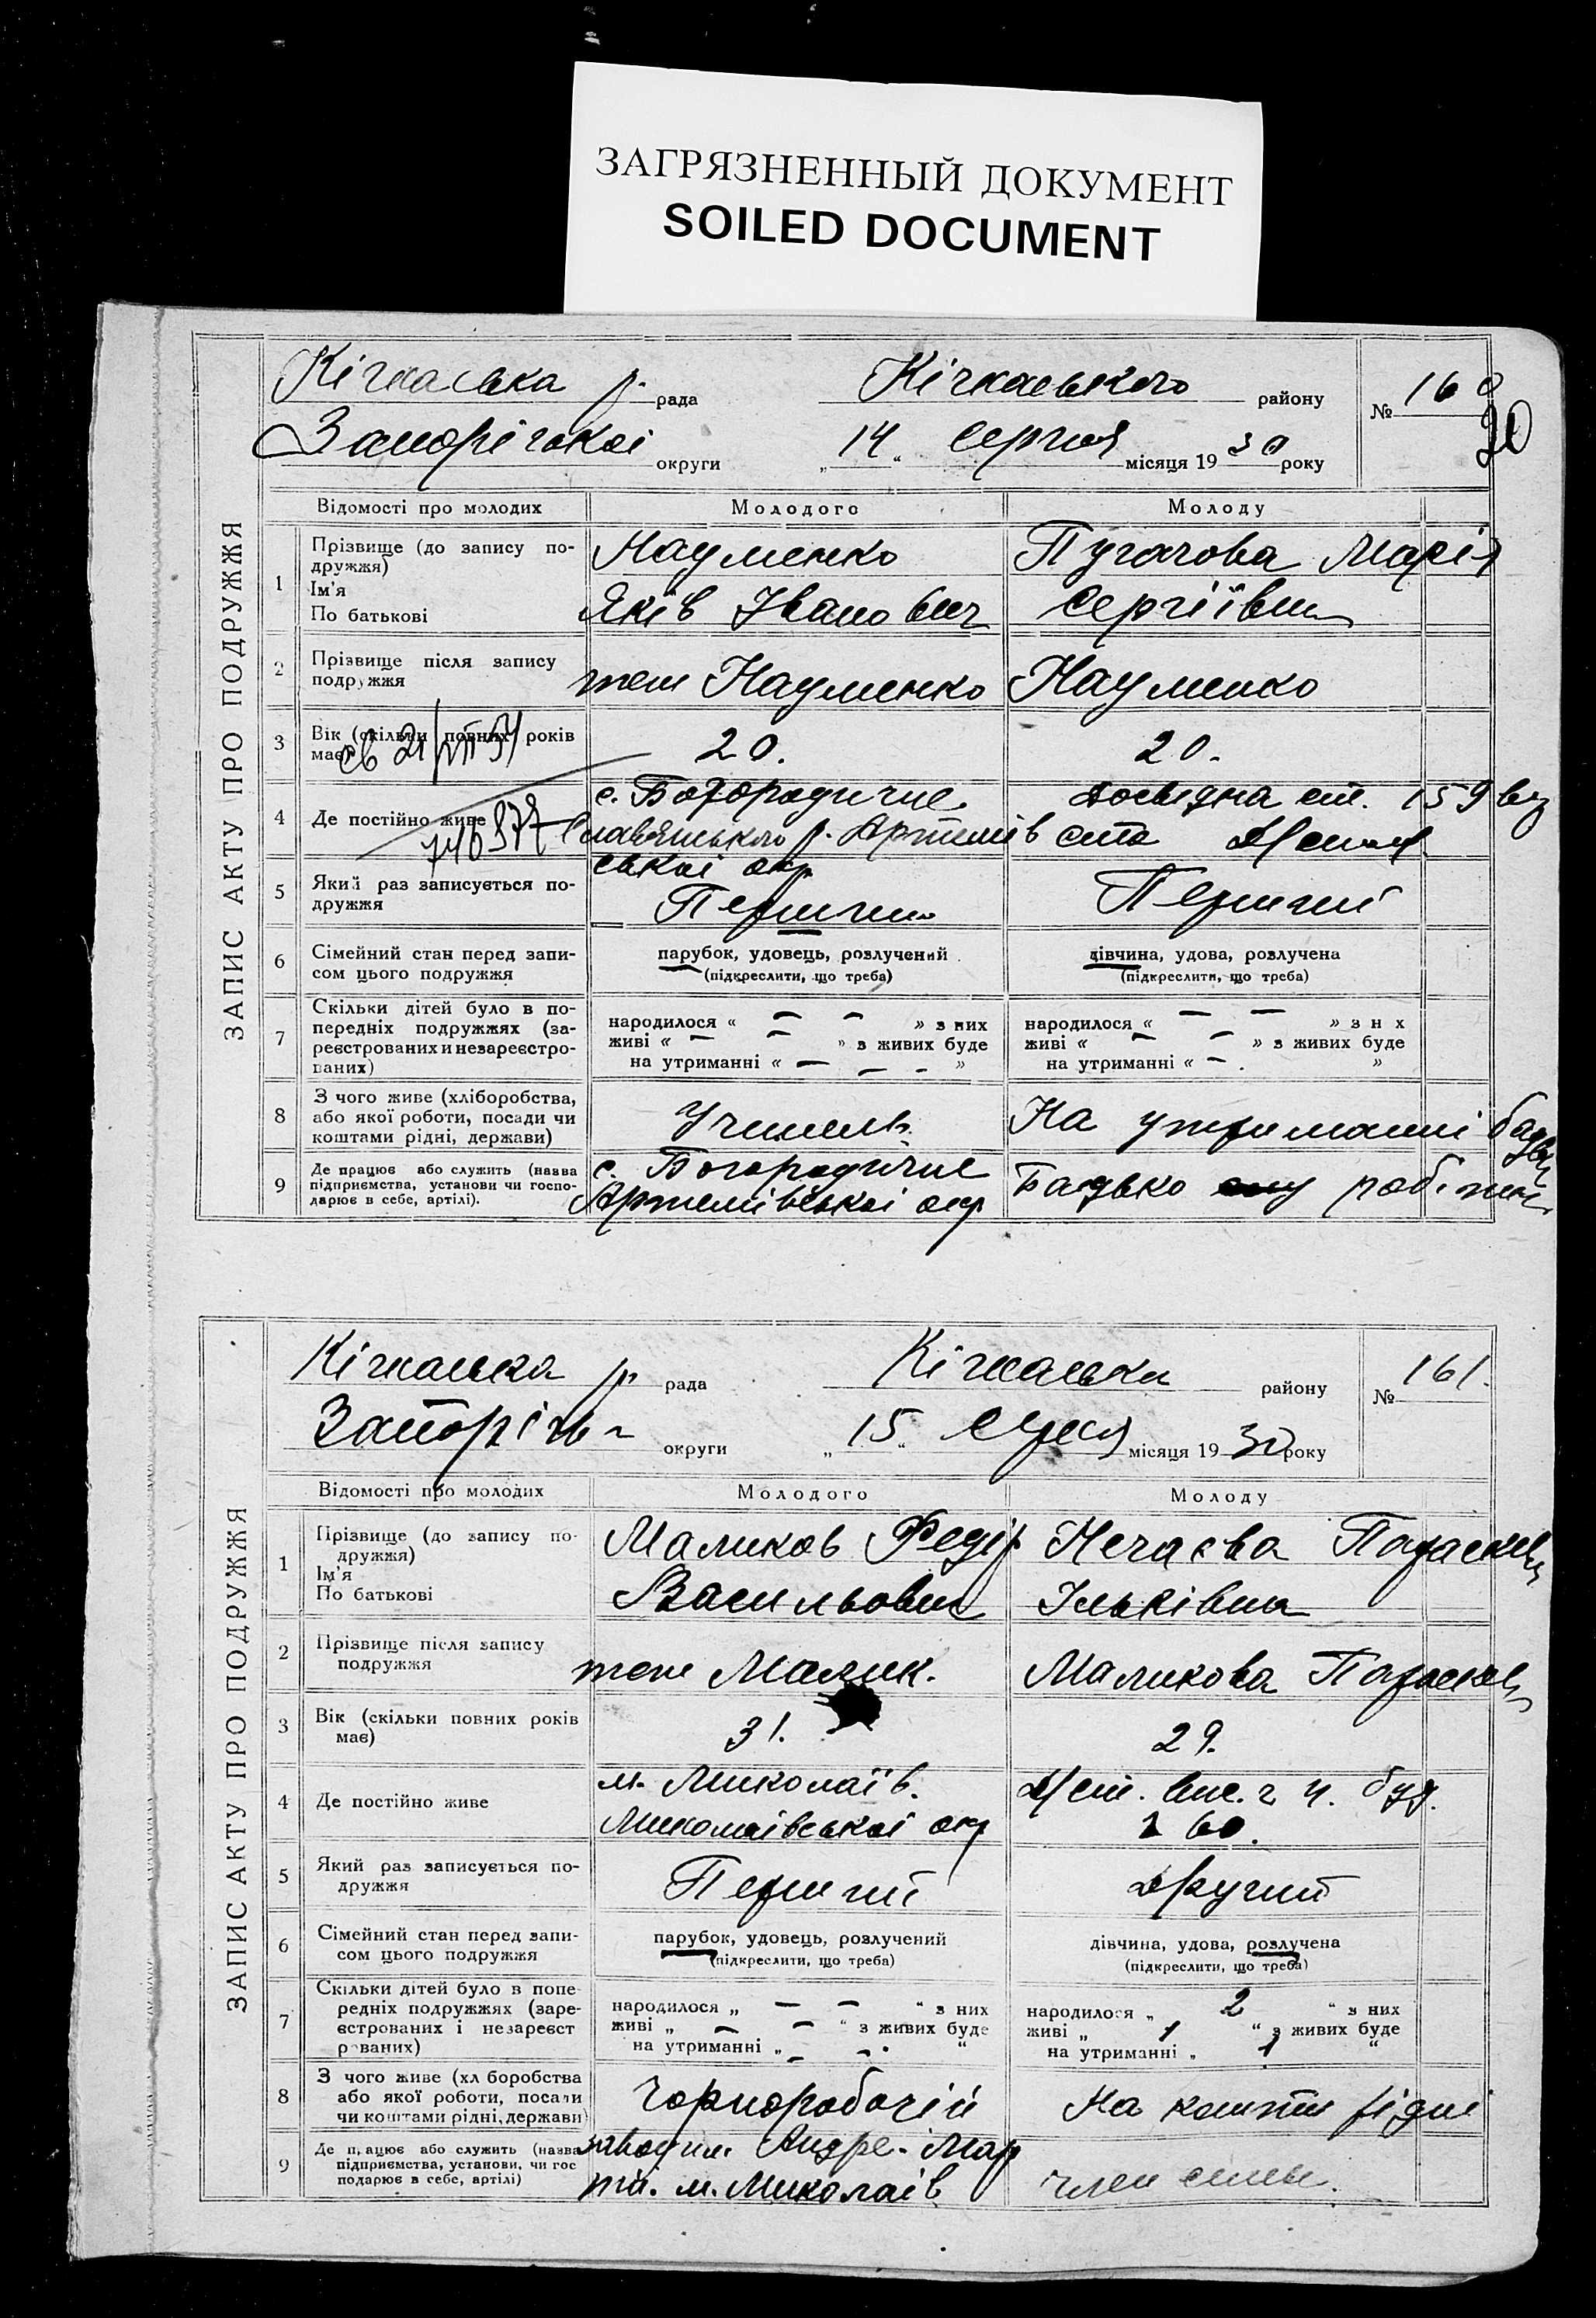 ЗАГРЯЗНЕННЫЙ ДОКУМЕНТ
SOILED DOCUMENT
ЗАПИС АКТУ ПРО ПОДРУЖЖЯ
Кічкаська р. рада Кічкаського району № 160
20
Запорізької округи „14“ серпня місяця 1930 року
Відомості про молодих Молодого Молоду
1 Прізвище (до запису подружжя) Науменко Пугачова Марія
Ім'я
По батькові Яків Іванович Сергіївна
2 Прізвище після запису подружжя теж Науменко Науменко
3 Вік (скільки повних років має) 20. 20.
4 Де постійно живе с. Богородичне Досвідна ст. 159
Славянського р. Артемівської окр.
5 Який раз записується подружжя Перший Перший
6 Сімейний стан перед записом цього подружжя парубок, удовець, розлучений (підкреслити, що треба) дівчина, удова, розлучена (підкреслити, що треба)
7 Скільки дітей було в попередніх подружжях (зареєстрованих и незареєстрованих) народилося « — — » з них живі « — — » з живих буде на утриманні « — — - » народилося « — — » з н х живі « — — » з живих буде на утриманні « — . »
8 З чого живе (хліборобства, або якої роботи, посади чи коштами рідні, держави) Учитель На утриманні батька
9 Де працює або служить (назва підприємства, установи чи господарює в себе, артілі). с. Богородичне Артемівської окр Батько робітник
ЗАПИС АКТУ ПРО ПОДРУЖЖЯ
Кічкаська р. рада Кічкаська району № 161.
Запоріз округи „15“ серпня місяця 1930 року
Відомості про молодих Молодого Молоду
1 Прізвище (до запису подружжя) Маликов Федір Нечаєва Параскев
Ім'я
По батькові Васильович Ільківна
2 Прізвище після запису подружжя теж Малик. Маликова Параскев
3 Вік (скільки повних років має) 31. 29.
4 Де постійно живе м. Миколаїв. Миколаївської окр буд. 160.
5 Який раз записується подружжя Перший Другий
6 Сімейний стан перед записом цього подружжя парубок, удовець, розлучений (підкреслити, що треба) дівчина, удова, розлучена (підкреслити, що треба)
7 Скільки дітей було в попередніх подружжях (зареєстрованих і незареєстрованих) народилося „ — — “ з них живі „ — — “ з живих буде на утриманні „ — - “ народилося „ 2 “ з них живі „ 1 “ з живих буде на утриманні „ 1 “
8 З чого живе (хліборобства або якої роботи, посади чи коштами рідні, держави) Чорноробочій На кошти рідні
9 Де працює або служить (назва підприємства, установи, чи господарює в себе, артілі) Андре. Мар м. Миколаїв член